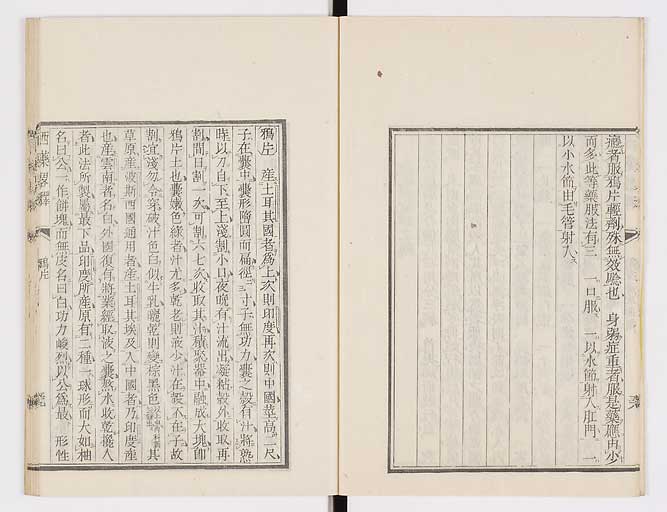 適者服鴉片輕劑殊無效騐也　身弱症重者服是藥應由少
而多此等藥服法有三　一口服　一以水筩射入肛門　一
以小水筩由毛管射入
鴉片　產土耳其國者爲上次則印度再次則中國莖高二尺
子在囊中囊形隋圓而扁徑三寸子無功力囊之殼有汁將熟
時以刀自下至上淺割小口夜晩有汁流出凝粘殼外收取再
割間日割一次可割六七次收取其汁積聚器中融成大塊卽
鴉片土也囊嫩色綠者汁尤多乾老則漿少汁在殼不在子故
割宜淺勿令穿破汁色白似牛乳曬乾則變棕黑色其
草原產波斯西國通用者產土耳其埃及入中國者乃印度產
也產雲南者名曰外國復有將業經取液之囊熬水收乾攙入
者此法所製屬最下品印度所產原有三種一球形而大如柚
名曰公一作餠塊而無皮名曰白功力峻烈以公爲最　形性
西藥畧釋
鴉片